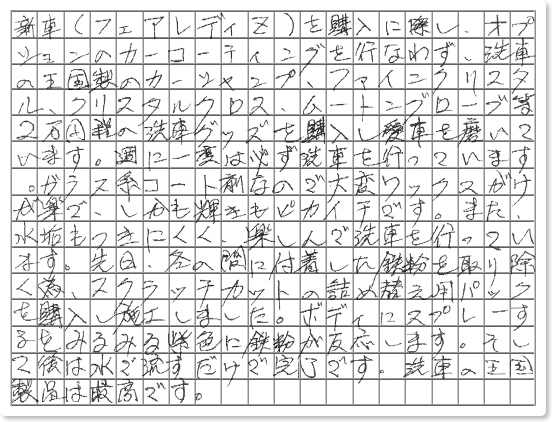 新車(フェアレディZ)を購入に際し、オプ
ションのカーコーティングを行なわず、洗車
の王国製のカーシャンプ、ファインクリスタ
ル、クリスタルクロス、ムートングローブ等
2万円程の洗車グッズを購入し愛車を磨いて
います。週に一度は必ず洗車を行っています
。ガラス系コート剤なので大変ワックスがけ
が楽で、しかも輝きもピカイチです。また、
水垢もつきにくく、楽しんで洗車を行ってい
ます。先日、冬の間に付着した鉄粉を取り除
く為、スクラッチカットの詰め替え用パック
を購入し施工しました。ボディにスプレーす
るをみるみる紫色に鉄粉が反応します。そし
て後は水で流すだけで完了です。洗車の王国
製品は最高です。